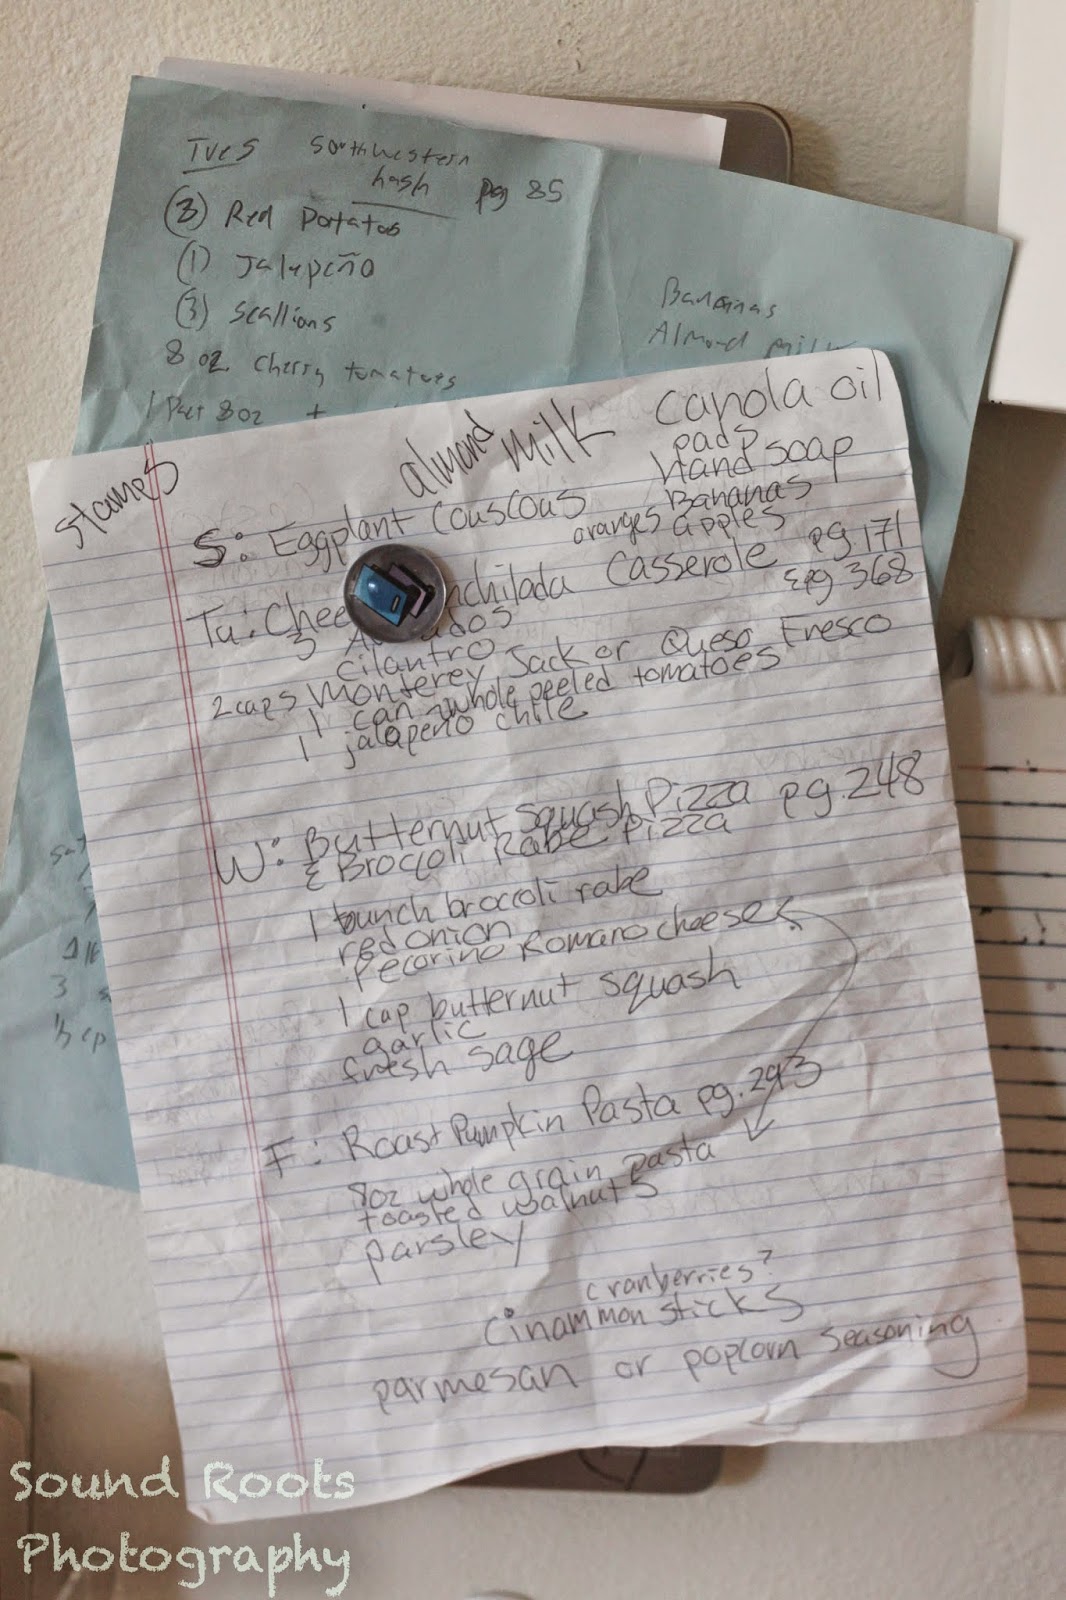 Tues Southwestern
hash pg 85
(3) Red Potatos
(1) Jalepeño
(3) Scallions
8 oz cherry tomatoes
Bananas
Almond milk
8oz +
almond milk
canola oil
pads
Hand soap
Bananas
oranges apples
S: Eggplant Couscous
Tu: Chee nchilada Casserole pg. 171
& pg 368
3 A ados
cilantro
2 cups Monterey Jack or Queso Fresco
1 can whole peeled tomatoes
1 jalapeño chile
W: Butternut Squash Pizza pg. 248
& Broccoli Rabe Pizza
1 bunch broccoli rabe
red onion
Pecorino Romano cheese
1 cap butternut squash
garlic
fresh sage
F: Roast Pumpkin Pasta pg. 293
8oz whole grain pasta
toasted walnuts
parsley
cranberries?
cinammon sticks
parmesan or popcorn seasoning
3
Sound Roots
Photography